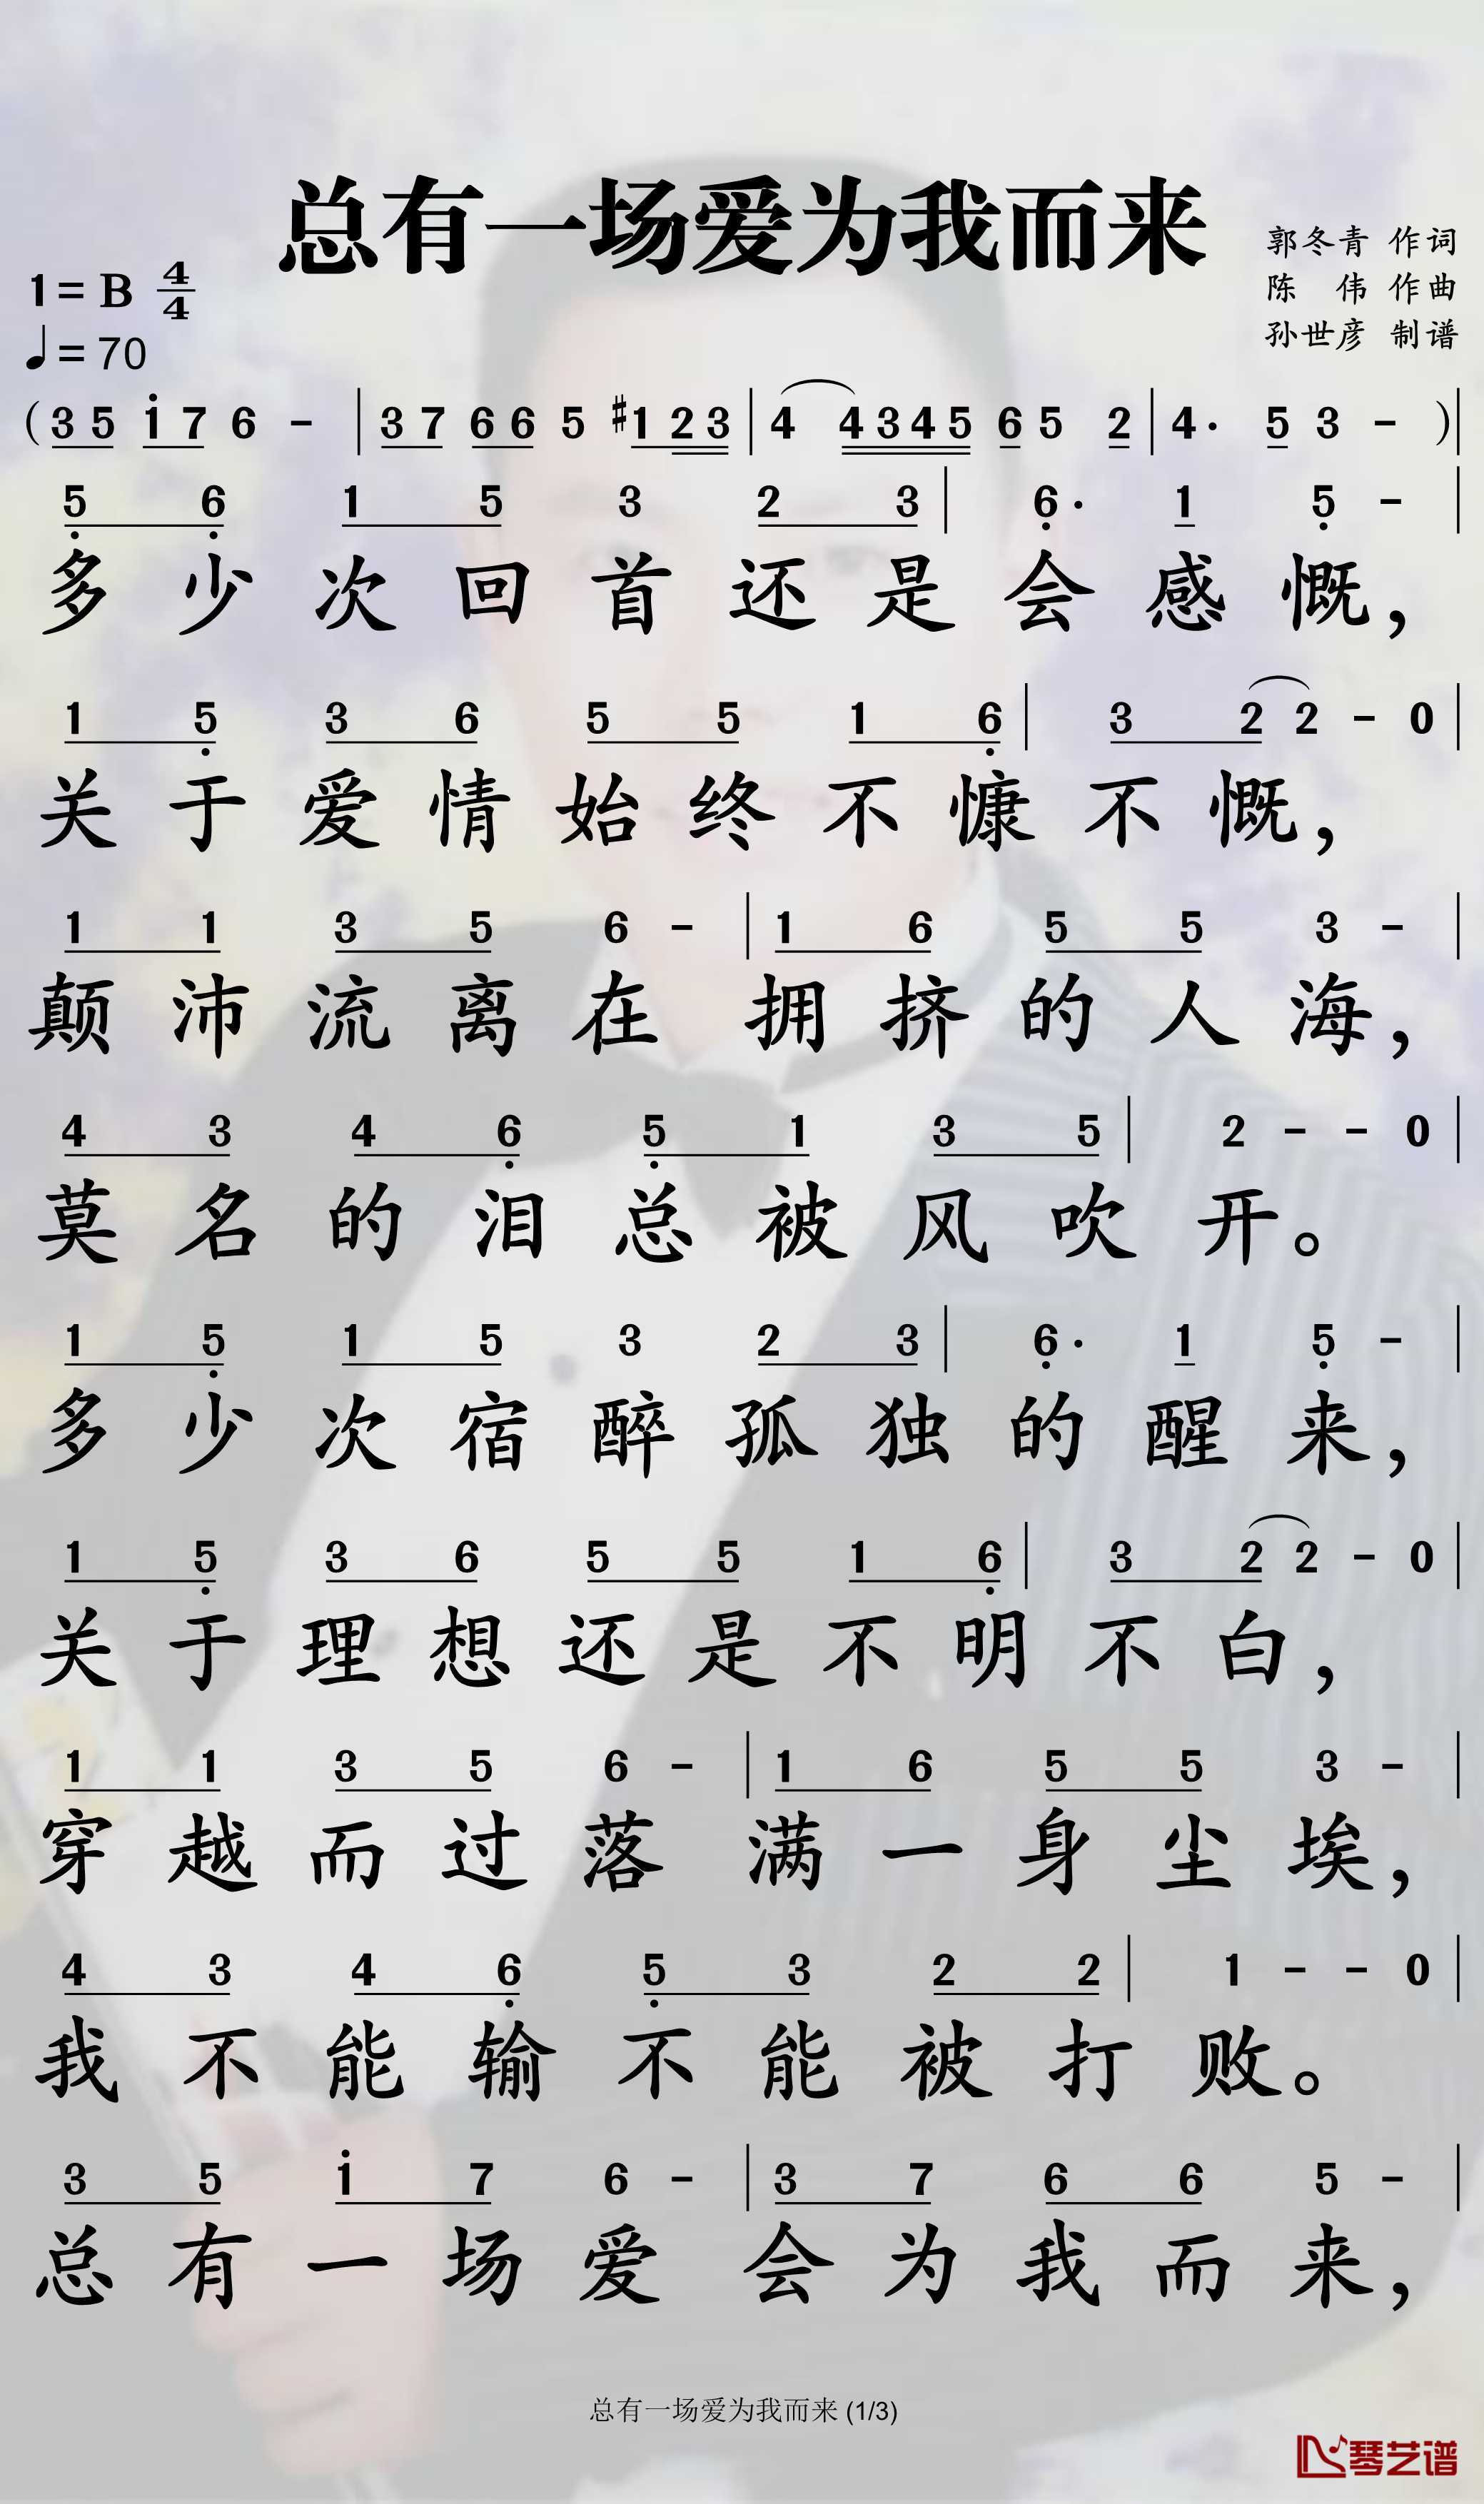 总有一场爱为我而来
郭冬青 作词
陈 伟 作曲
孙世彦 制谱
1= B 4/4
♩= 70
( 3 5 1̇ 7 6 - | 3 7 6 6 5 #1 2 3 | 4 4 3 4 5 6 5 2 | 4· 5 3 - ) |
5̣ 6̣ 1 5 3 2 3 | 6̣· 1 5̣ - |
多少次回首还是会感慨，
1 5̣ 3 6 5 5 1 6̣ | 3 2 2 - 0 |
关于爱情始终不慷不慨，
1 1 3 5 6 - | 1 6 5 5 3 - |
颠沛流离在拥挤的人海，
4 3 4 6̣ 5̣ 1 3 5 | 2 - - 0 |
莫名的泪总被风吹开。
1 5̣ 1 5 3 2 3 | 6̣· 1 5̣ - |
多少次宿醉孤独的醒来，
1 5̣ 3 6 5 5 1 6̣ | 3 2 2 - 0 |
关于理想还是不明不白，
1 1 3 5 6 - | 1 6 5 5 3 - |
穿越而过落满一身尘埃，
4 3 4 6̣ 5̣ 3 2 2 | 1 - - 0 |
我不能输不能被打败。
3 5 1̇ 7 6 - | 3 7 6 6 5 - |
总有一场爱会为我而来，
总有一场爱为我而来 (1/3)
琴艺谱